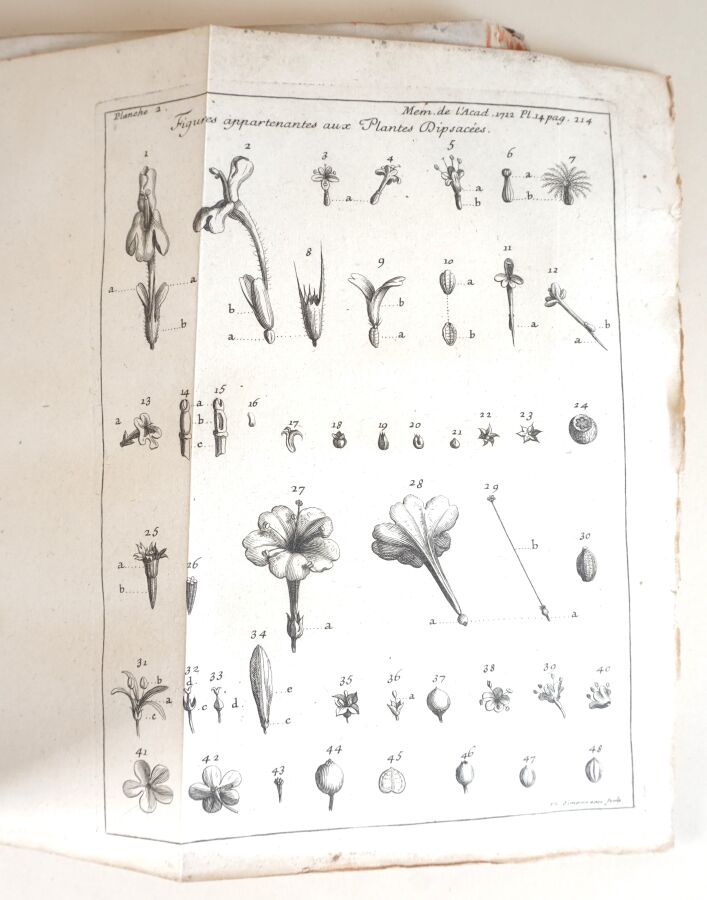 Planche 2. Mem. de l'Acad. 1712 Pl. 14 pag. 214
Figures appartenantes aux Plantes Dipsacées.
1 2 3 4 5 6 7
a a b
a b
8 9 10 11 12
a a b b a b a a b a b a
13 14 15 16 17 18 19 20 21 22 23 24
a a b c
25 26 27 28 29 30
a b a a b a
31 32 33 34 35 36 37 38 39 40
b a c d c d e c a
41 42 43 44 45 46 47 48